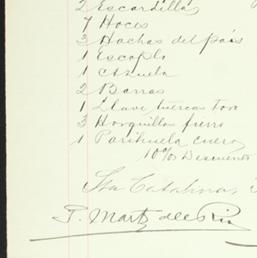 2 Escardillas
7 Hoces
3 Hachas del país
1 Escoplo
1 Azuela
2 Barras
1 Llave tuercas
3 Horquillas fierro
1 Parihuela cuero
10% Descuento
Sta Catalina